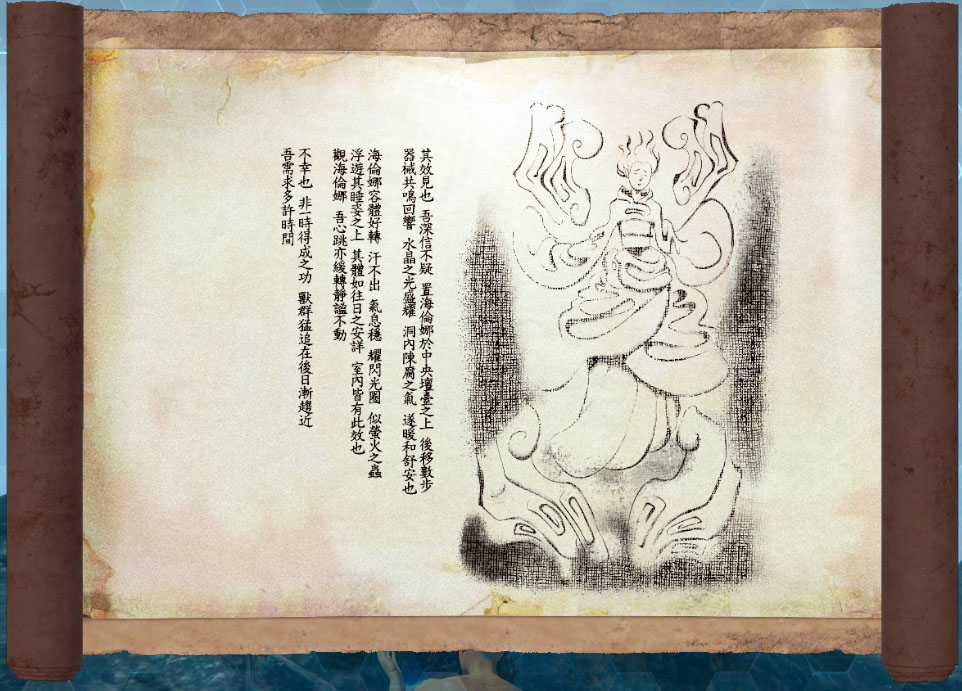 其效見也　吾深信不疑　置海倫娜於中央壇臺之上　後移數步
器械共鳴回響　水晶之光盛耀　洞內陳腐之氣　遂暖和舒安也
海倫娜容體好轉　汗不出　氣息穩　耀閃光圈　似螢火之蟲
浮遊其睡姿之上　其體如往日之安詳　室內皆有此效也
觀海倫娜　吾心跳亦緩轉靜謐不動
不幸也　非一時得成之功　獸群猛追在後日漸趨近
吾需求多許時間